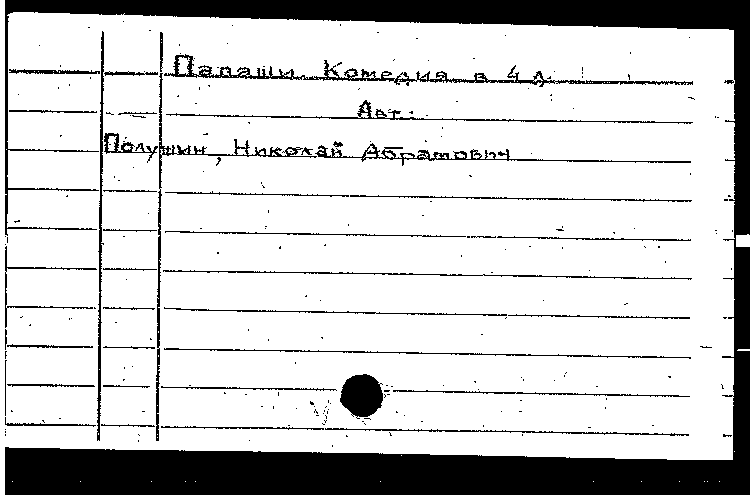 Папаши. Комедия в 4 д.
Авт.:
Полушин, Николай Абрамович